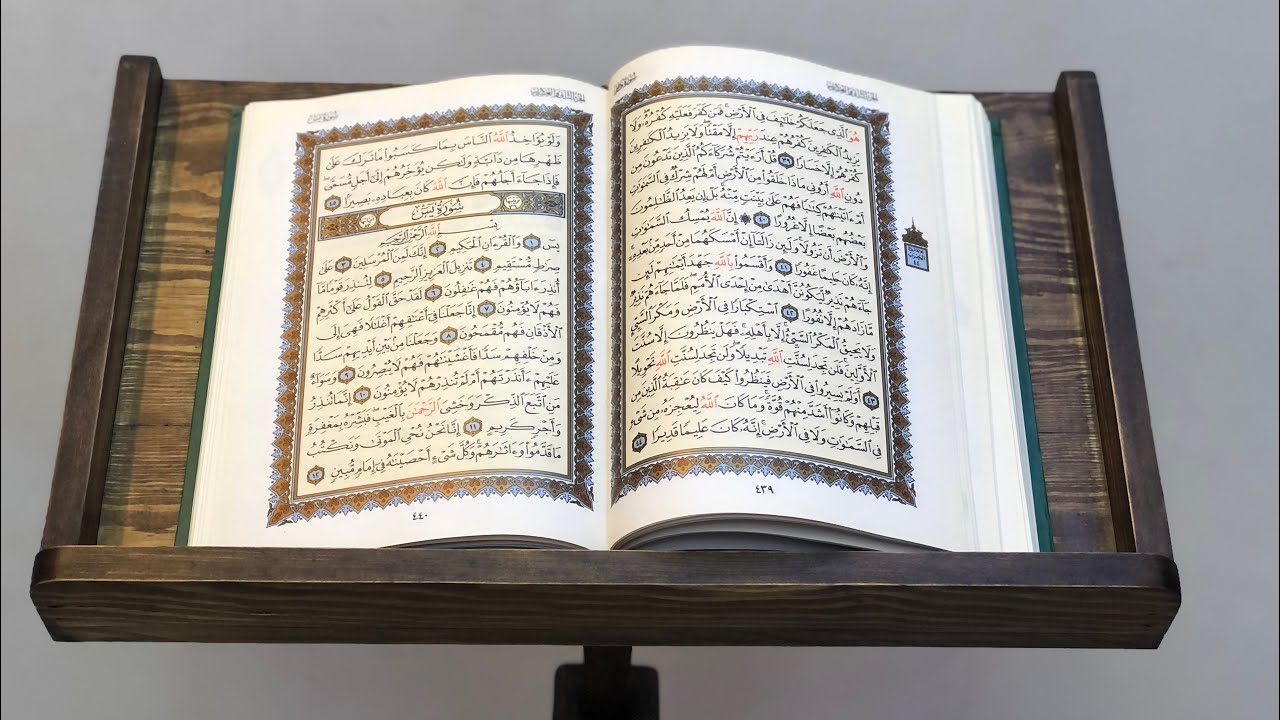 سورة فاطر
الجزء الثاني والعشرون
هُوَ ٱلَّذِى جَعَلَكُمْ خَلَـٰٓئِفَ فِى ٱلْأَرْضِ فَمَن كَفَرَ فَعَلَيْهِ كُفْرُهُۥ وَلَا
يَزِيدُ ٱلْكَـٰفِرِينَ كُفْرُهُمْ عِندَ رَبِّهِمْ إِلَّا مَقْتًا وَلَا يَزِيدُ ٱلْكَـٰفِرِينَ
كُفْرُهُمْ إِلَّا خَسَارًا ٣٩ قُلْ أَرَءَيْتُمْ شُرَكَآءَكُمُ ٱلَّذِينَ تَدْعُونَ مِن
دُونِ ٱللَّهِ أَرُونِى مَاذَا خَلَقُوا۟ مِنَ ٱلْأَرْضِ أَمْ لَهُمْ شِرْكٌ فِى ٱلسَّمَـٰوَٰتِ
أَمْ ءَاتَيْنَـٰهُمْ كِتَـٰبًا فَهُمْ عَلَىٰ بَيِّنَتٍ مِّنْهُ ۚ بَلْ إِن يَعِدُ ٱلظَّـٰلِمُونَ
بَعْضُهُم بَعْضًا إِلَّا غُرُورًا ٤٠ ۞ إِنَّ ٱللَّهَ يُمْسِكُ ٱلسَّمَـٰوَٰتِ
وَٱلْأَرْضَ أَن تَزُولَا ۚ وَلَئِن زَالَتَآ إِنْ أَمْسَكَهُمَا مِنْ أَحَدٍ مِّنۢ بَعْدِهِۦٓ ۚ
إِنَّهُۥ كَانَ حَلِيمًا غَفُورًا ٤١ وَأَقْسَمُوا۟ بِٱللَّهِ جَهْدَ أَيْمَـٰنِهِمْ لَئِن
جَآءَهُمْ نَذِيرٌ لَّيَكُونُنَّ أَهْدَىٰ مِنْ إِحْدَى ٱلْأُمَمِ ۖ فَلَمَّا جَآءَهُمْ نَذِيرٌ
مَّا زَادَهُمْ إِلَّا نُفُورًا ٤٢ ٱسْتِكْبَارًا فِى ٱلْأَرْضِ وَمَكْرَ ٱلسَّيِّئِ ۚ
وَلَا يَحِيقُ ٱلْمَكْرُ ٱلسَّيِّئُ إِلَّا بِأَهْلِهِۦ ۚ فَهَلْ يَنظُرُونَ إِلَّا سُنَّتَ
ٱلْأَوَّلِينَ ۚ فَلَن تَجِدَ لِسُنَّتِ ٱللَّهِ تَبْدِيلًا ۖ وَلَن تَجِدَ لِسُنَّتِ ٱللَّهِ تَحْوِيلًا
٤٣ أَوَلَمْ يَسِيرُوا۟ فِى ٱلْأَرْضِ فَيَنظُرُوا۟ كَيْفَ كَانَ عَـٰقِبَةُ ٱلَّذِينَ مِن
قَبْلِهِمْ وَكَانُوٓا۟ أَشَدَّ مِنْهُمْ قُوَّةً ۚ وَمَا كَانَ ٱللَّهُ لِيُعْجِزَهُۥ مِن شَىْءٍ
فِى ٱلسَّمَـٰوَٰتِ وَلَا فِى ٱلْأَرْضِ ۚ إِنَّهُۥ كَانَ عَلِيمًا قَدِيرًا ٤٤
٤٣٩
سورة يس
الجزء الثاني والعشرون
وَلَوْ يُؤَاخِذُ ٱللَّهُ ٱلنَّاسَ بِمَا كَسَبُوا۟ مَا تَرَكَ عَلَىٰ
ظَهْرِهَا مِن دَآبَّةٍ وَلَـٰكِن يُؤَخِّرُهُمْ إِلَىٰٓ أَجَلٍ مُّسَمًّى ۖ
فَإِذَا جَآءَ أَجَلُهُمْ فَإِنَّ ٱللَّهَ كَانَ بِعِبَادِهِۦ بَصِيرًۢا ٤٥
سُورَةُ يسٓ
بِسْمِ ٱللَّهِ ٱلرَّحْمَـٰنِ ٱلرَّحِيمِ
يسٓ ١ وَٱلْقُرْءَانِ ٱلْحَكِيمِ ٢ إِنَّكَ لَمِنَ ٱلْمُرْسَلِينَ ٣ عَلَىٰ
صِرَٰطٍ مُّسْتَقِيمٍ ٤ تَنزِيلَ ٱلْعَزِيزِ ٱلرَّحِيمِ ٥ لِتُنذِرَ قَوْمًا مَّآ
أُنذِرَ ءَابَآؤُهُمْ فَهُمْ غَـٰفِلُونَ ٦ لَقَدْ حَقَّ ٱلْقَوْلُ عَلَىٰٓ أَكْثَرِهِمْ
فَهُمْ لَا يُؤْمِنُونَ ٧ إِنَّا جَعَلْنَا فِىٓ أَعْنَـٰقِهِمْ أَغْلَـٰلًا فَهِىَ إِلَى
ٱلْأَذْقَانِ فَهُم مُّقْمَحُونَ ٨ وَجَعَلْنَا مِنۢ بَيْنِ أَيْدِيهِمْ سَدًّا
وَمِنْ خَلْفِهِمْ سَدًّا فَأَغْشَيْنَـٰهُمْ فَهُمْ لَا يُبْصِرُونَ ٩ وَسَوَآءٌ
عَلَيْهِمْ ءَأَنذَرْتَهُمْ أَمْ لَمْ تُنذِرْهُمْ لَا يُؤْمِنُونَ ١٠ إِنَّمَا تُنذِرُ
مَنِ ٱتَّبَعَ ٱلذِّكْرَ وَخَشِىَ ٱلرَّحْمَـٰنَ بِٱلْغَيْبِ ۖ فَبَشِّرْهُ بِمَغْفِرَةٍ
وَأَجْرٍ كَرِيمٍ ١١ إِنَّا نَحْنُ نُحْىِ ٱلْمَوْتَىٰ وَنَكْتُبُ
مَا قَدَّمُوا۟ وَءَاثَـٰرَهُمْ ۚ وَكُلَّ شَىْءٍ أَحْصَيْنَـٰهُ فِىٓ إِمَامٍ مُّبِينٍ ١٢
٤٤٠